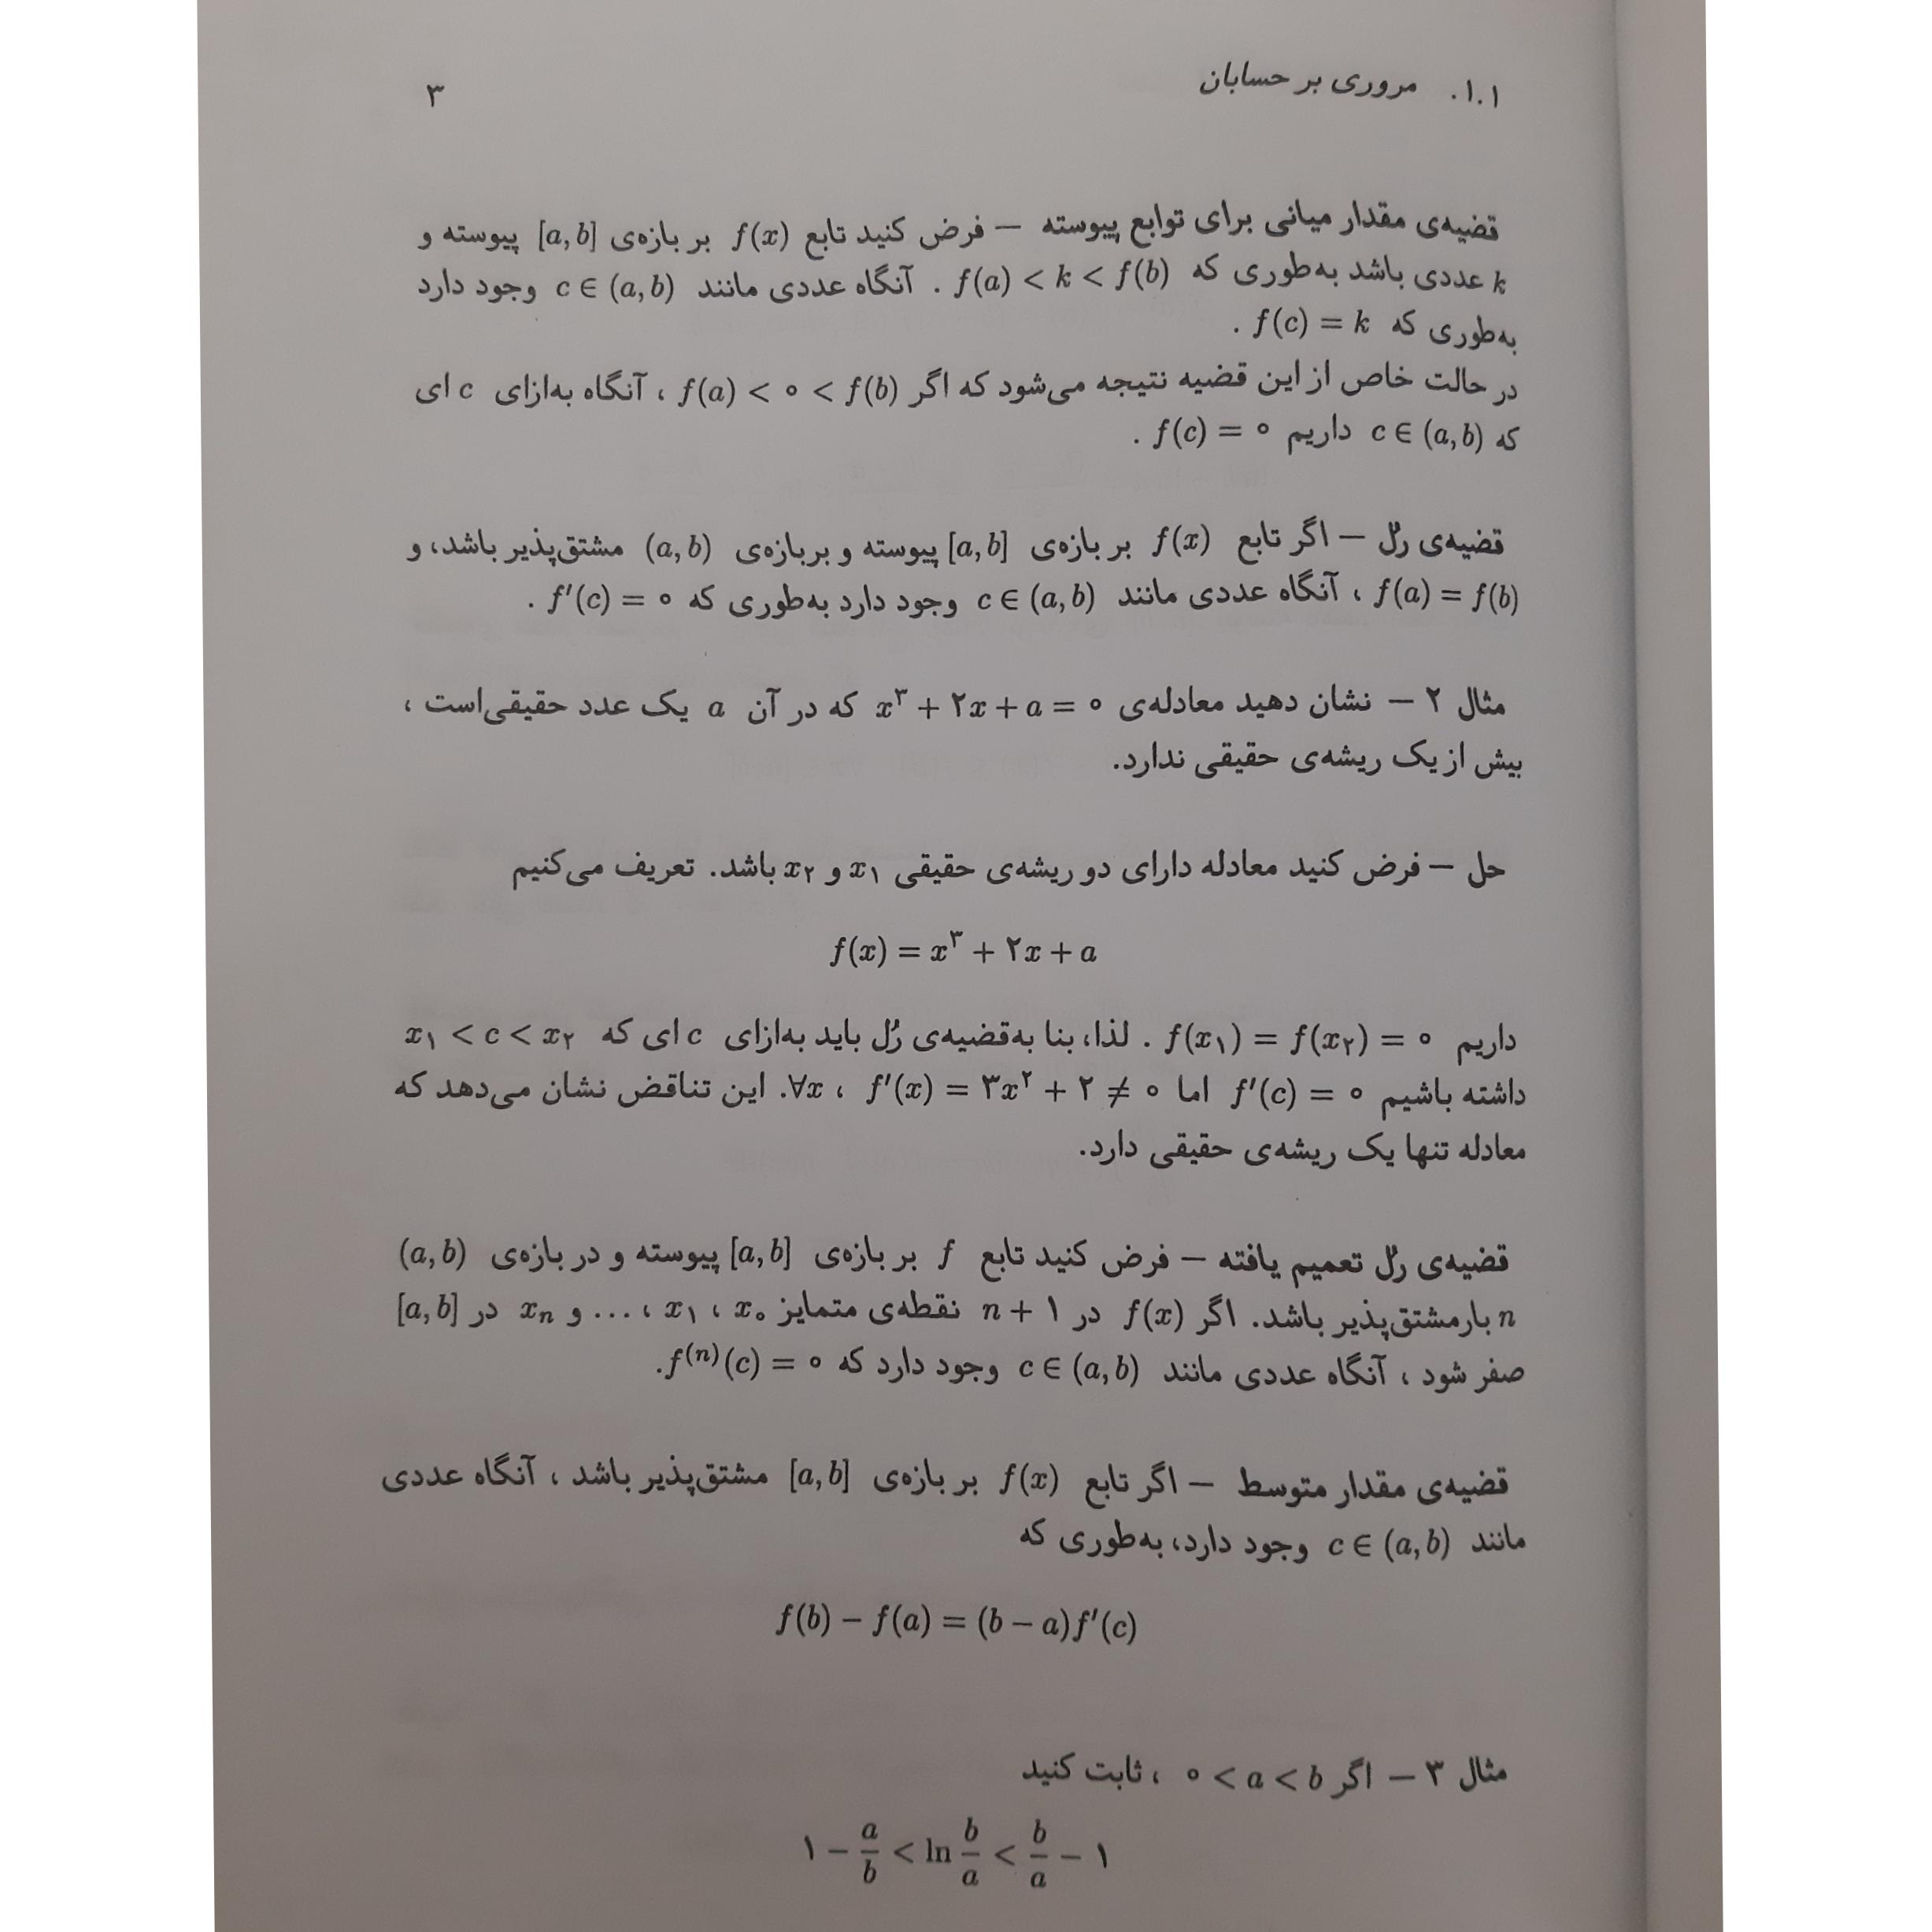 ۱.۱. مروری بر حسابان ۳
قضیه‌ی مقدار میانی برای توابع پیوسته – فرض کنید تابع f(x) بر بازه‌ی [a, b] پیوسته و
k عددی باشد به‌طوری که f(a) < k < f(b) . آنگاه عددی مانند c ∈ (a, b) وجود دارد
به‌طوری که f(c) = k .
در حالت خاص از این قضیه نتیجه می‌شود که اگر f(a) < ۰ < f(b) ، آنگاه به‌ازای c ای
که c ∈ (a, b) داریم f(c) = ۰ .
قضیه‌ی رُل – اگر تابع f(x) بر بازه‌ی [a, b] پیوسته و بربازه‌ی (a, b) مشتق‌پذیر باشد، و
f(a) = f(b) ، آنگاه عددی مانند c ∈ (a, b) وجود دارد به‌طوری که f′(c) = ۰ .
مثال ۲ – نشان دهید معادله‌ی x³ + ۲x + a = ۰ که در آن a یک عدد حقیقی‌است ،
بیش از یک ریشه‌ی حقیقی ندارد.
حل – فرض کنید معادله دارای دو ریشه‌ی حقیقی x₁ و x₂ باشد. تعریف می‌کنیم
f(x) = x³ + ۲x + a
داریم f(x₁) = f(x₂) = ۰ . لذا، بنا به‌قضیه‌ی رُل باید به‌ازای c ای که x₁ < c < x₂
داشته باشیم f′(c) = ۰ اما f′(x) = ۳x² + ۲ ≠ ۰ ، ∀x. این تناقض نشان می‌دهد که
معادله تنها یک ریشه‌ی حقیقی دارد.
قضیه‌ی رُل تعمیم یافته – فرض کنید تابع f بر بازه‌ی [a, b] پیوسته و در بازه‌ی (a, b)
n بارمشتق‌پذیر باشد. اگر f(x) در n + ۱ نقطه‌ی متمایز x₀ ، x₁ ، ... و xₙ در [a, b]
صفر شود ، آنگاه عددی مانند c ∈ (a, b) وجود دارد که f⁽ⁿ⁾(c) = ۰.
قضیه‌ی مقدار متوسط – اگر تابع f(x) بر بازه‌ی [a, b] مشتق‌پذیر باشد ، آنگاه عددی
مانند c ∈ (a, b) وجود دارد، به‌طوری که
f(b) − f(a) = (b − a)f′(c)
مثال ۳ – اگر ۰ < a < b ، ثابت کنید
۱ − a/b < ln b/a < b/a − ۱